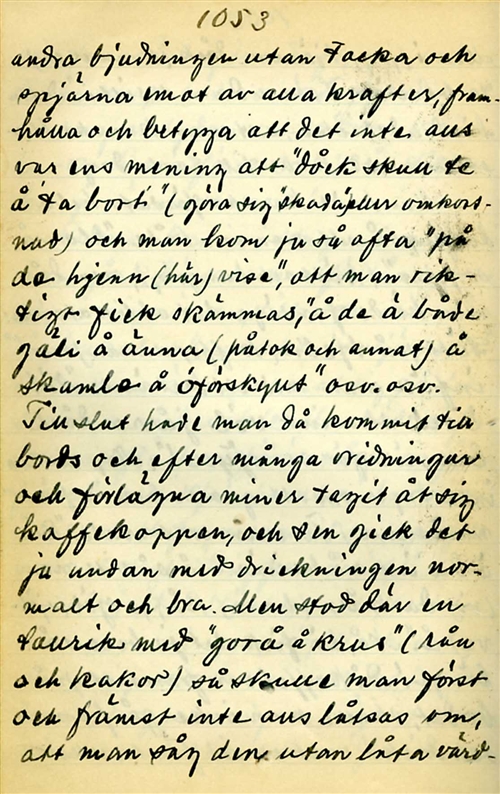 1053
andra bjudningen utan tacka och
spjärna emot av alla krafter, fram-
hålla och betyga att det inte alls
var ens mening att "dôck skull te
å ta bort" (göra sig skada eller omkos-
nad) och man kom ju så ofta "på
de hjenn (här) vise", att man rik-
tigt fick skämmas, "å de ä både
gäli å änna (påtok och annat) å
skamle å óförskyllt" osv. osv.
Till slut hade man då kommit till
bords och efter många vridningar
och förlägna miner tagit åt sig
kaffekoppen, och sen gick det
ju undan med drickningen nor-
malt och bra. Men stod där en
tallrik med "gorå å krus" (rån
och kakor) så skulle man först
och främst inte alls låtsas om,
att man såg den utan låta värd-